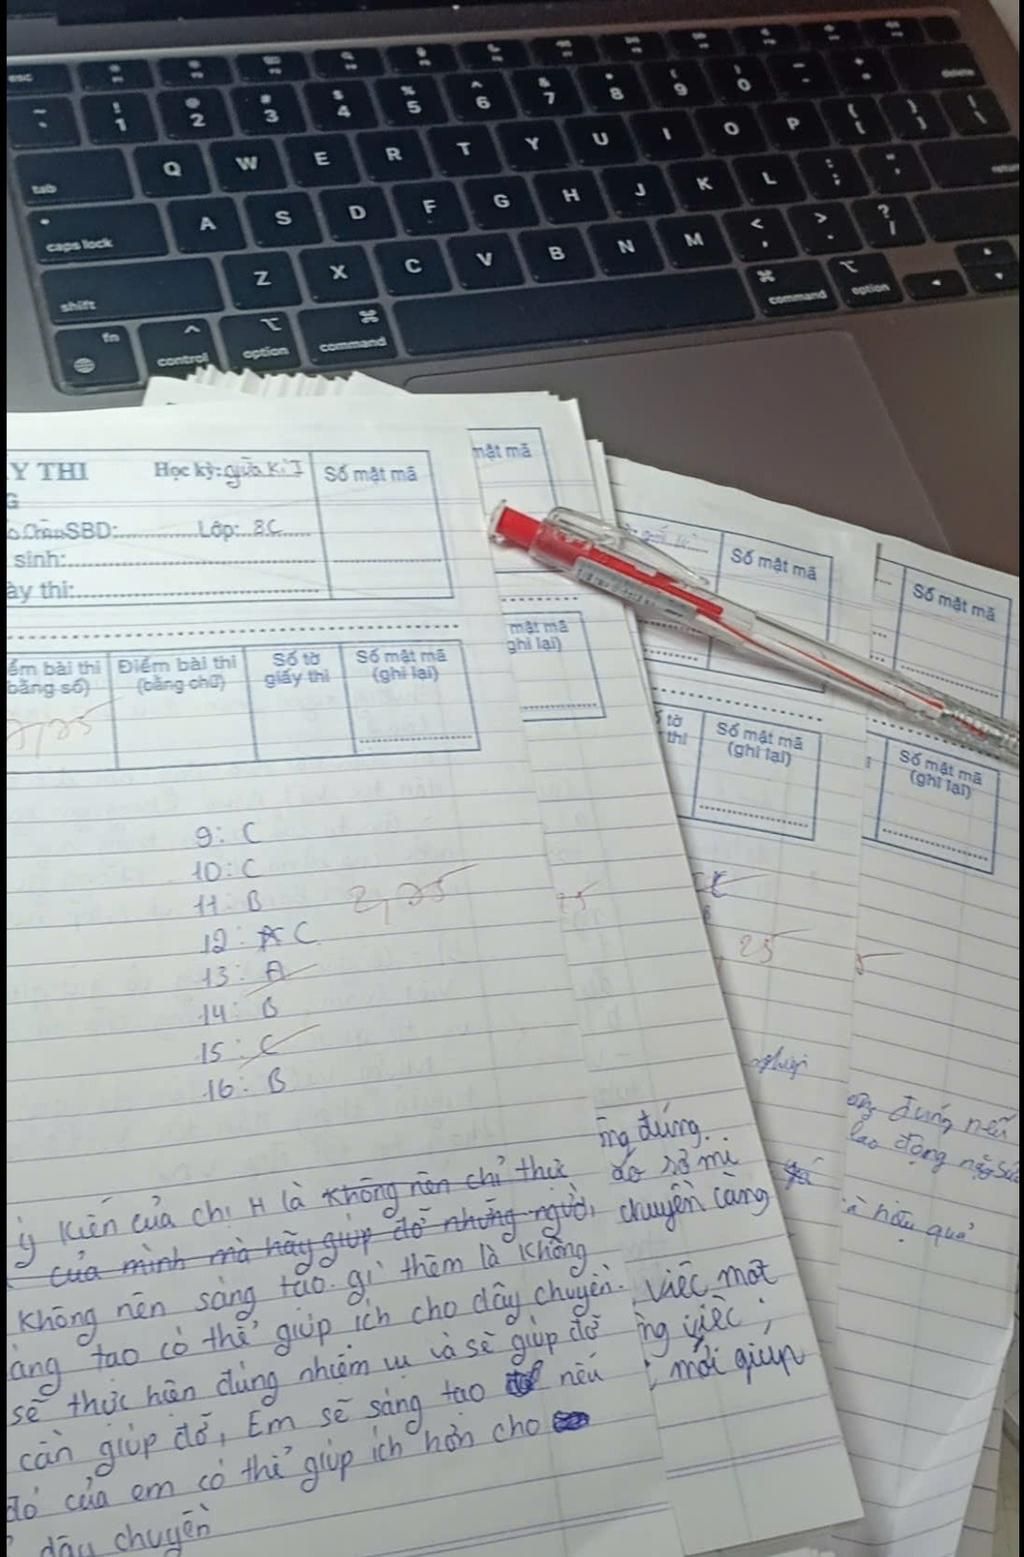 esc
1 2 3 4 5 6 7 8 9 0
tab Q W E R T Y U I O P
delete
caps lock A S D F G H J K L
return
shift Z X C V B N M
fn control option command command option
Y THI Học kỳ: giữa kì I Số mật mã
SBD: Lớp: 8C
sinh:
ày thi:
ểm bài thi Điểm bài thi Số tờ Số mật mã
bằng số) (bằng chữ) giấy thi (ghi lại)
9: C
10: C
11: B 2,25
12: A C
13: A
14: B
15: C
16: B
ý kiến của chị H là không nên chỉ thực
của mình mà hãy giúp đỡ những người
không nên sáng tạo gì thêm là không
áng tạo có thể giúp ích cho dây chuyền.
sẽ thực hiện đúng nhiệm vụ và sẽ giúp đỡ
cần giúp đỡ, Em sẽ sáng tạo nếu
đó của em có thể giúp ích hơn cho
dây chuyền
mật mã
mật mã
ghi lại)
25
ng đúng.
áo sơ mi
chuyền càng
việc một
ng việc;
mới giúp
Số mật mã
tờ Số mật mã
thi (ghi lại)
25
nghiệp
Số mật mã
Số mật mã
(ghi lại)
đúng nếu
lao động
hậu quả